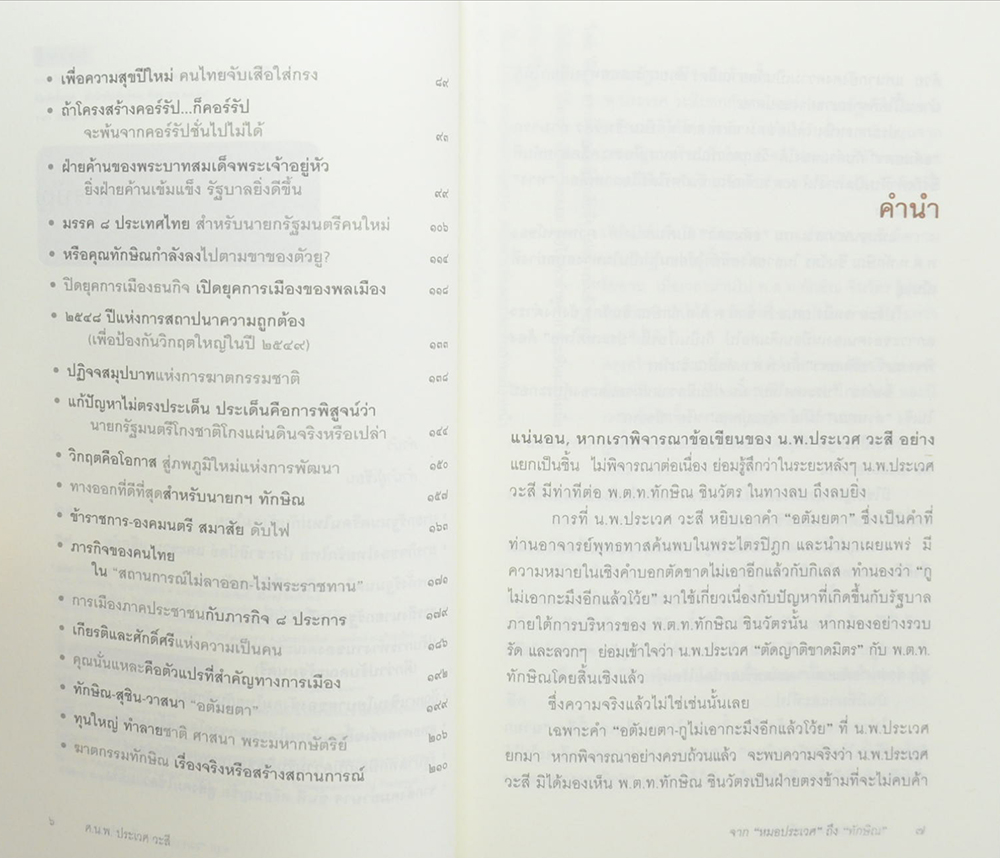 • เพื่อความสุขปีใหม่ คนไทยจับเสือใส่กรง ๘๙
• ถ้าโครงสร้างคอร์รัป...ก็คอร์รัป
จะพ้นจากคอร์รัปชั่นไปไม่ได้ ๙๓
• ฝ่ายค้านของพระบาทสมเด็จพระเจ้าอยู่หัว
ยิ่งฝ่ายค้านเข้มแข็ง รัฐบาลยิ่งดีขึ้น ๙๙
• มรรค ๘ ประเทศไทย สำหรับนายกรัฐมนตรีคนใหม่ ๑๐๖
• หรือคุณทักษิณกำลังลงไปตามขาของตัวยู? ๑๑๔
• ปิดยุคการเมืองธนกิจ เปิดยุคการเมืองของพลเมือง ๑๑๘
• ๒๕๔๘ ปีแห่งการสถาปนาความถูกต้อง
(เพื่อป้องกันวิกฤตใหญ่ในปี ๒๕๔๙) ๑๓๓
• ปฏิจจสมุปบาทแห่งการฆาตกรรมชาติ ๑๓๘
• แก้ปัญหาไม่ตรงประเด็น ประเด็นคือการพิสูจน์ว่า
นายกรัฐมนตรีโกงชาติโกงแผ่นดินจริงหรือเปล่า ๑๔๔
• วิกฤตคือโอกาส สู่ภพภูมิใหม่แห่งการพัฒนา ๑๕๐
• ทางออกที่ดีที่สุดสำหรับนายกฯ ทักษิณ ๑๕๘
• ข้าราชการ-องคมนตรี สมาสัย ดับไฟ ๑๖๓
• ภารกิจของคนไทย
ใน "สถานการณ์ไม่ลาออก-ไม่พระราชทาน" ๑๗๑
• การเมืองภาคประชาชนกับภารกิจ ๘ ประการ ๑๗๙
• เกียรติและศักดิ์ศรีแห่งความเป็นคน ๑๘๖
• คุณนั่นแหละคือตัวแปรที่สำคัญทางการเมือง ๑๙๒
• ทักษิณ-สุชิน-วาสนา "อตัมยตา" ๑๙๙
• ทุนใหญ่ ทำลายชาติ ศาสนา พระมหากษัตริย์ ๒๐๖
• ฆาตกรรมทักษิณ เรื่องจริงหรือสร้างสถานการณ์ ๒๑๐
๖ ศ.น.พ. ประเวศ วะสี
คำนำ
แน่นอน, หากเราพิจารณาข้อเขียนของ น.พ.ประเวศ วะสี อย่าง
แยกเป็นชิ้น ไม่พิจารณาต่อเนื่อง ย่อมรู้สึกว่าในระยะหลังๆ น.พ.ประเวศ
วะสี มีท่าทีต่อ พ.ต.ท.ทักษิณ ชินวัตร ในทางลบ ถึงลบยิ่ง
การที่ น.พ.ประเวศ วะสี หยิบเอาคำ "อตัมยตา" ซึ่งเป็นคำที่
ท่านอาจารย์พุทธทาสค้นพบในพระไตรปิฎก และนำมาเผยแพร่ มี
ความหมายในเชิงคำบอกตัดขาดไม่เอาอีกแล้วกับกิเลส ทำนองว่า "กู
ไม่เอากะมึงอีกแล้วโว้ย" มาใช้เกี่ยวเนื่องกับปัญหาที่เกิดขึ้นกับรัฐบาล
ภายใต้การบริหารของ พ.ต.ท.ทักษิณ ชินวัตรนั้น หากมองอย่างรวบ
รัด และลวกๆ ย่อมเข้าใจว่า น.พ.ประเวศ "ตัดญาติขาดมิตร" กับ พ.ต.ท.
ทักษิณโดยสิ้นเชิงแล้ว
ซึ่งความจริงแล้วไม่ใช่เช่นนั้นเลย
เฉพาะคำ "อตัมยตา-กูไม่เอามึงอีกแล้วโว้ย" ที่ น.พ.ประเวศ
ยกมา หากพิจารณาอย่างครบถ้วนแล้ว จะพบความจริงว่า น.พ.ประเวศ
วะสี มิได้มองเห็น พ.ต.ท.ทักษิณ ชินวัตรเป็นฝ่ายตรงข้ามที่จะไม่คบค้า
จาก "หมอประเวศ" ถึง "ทักษิณ" ๗